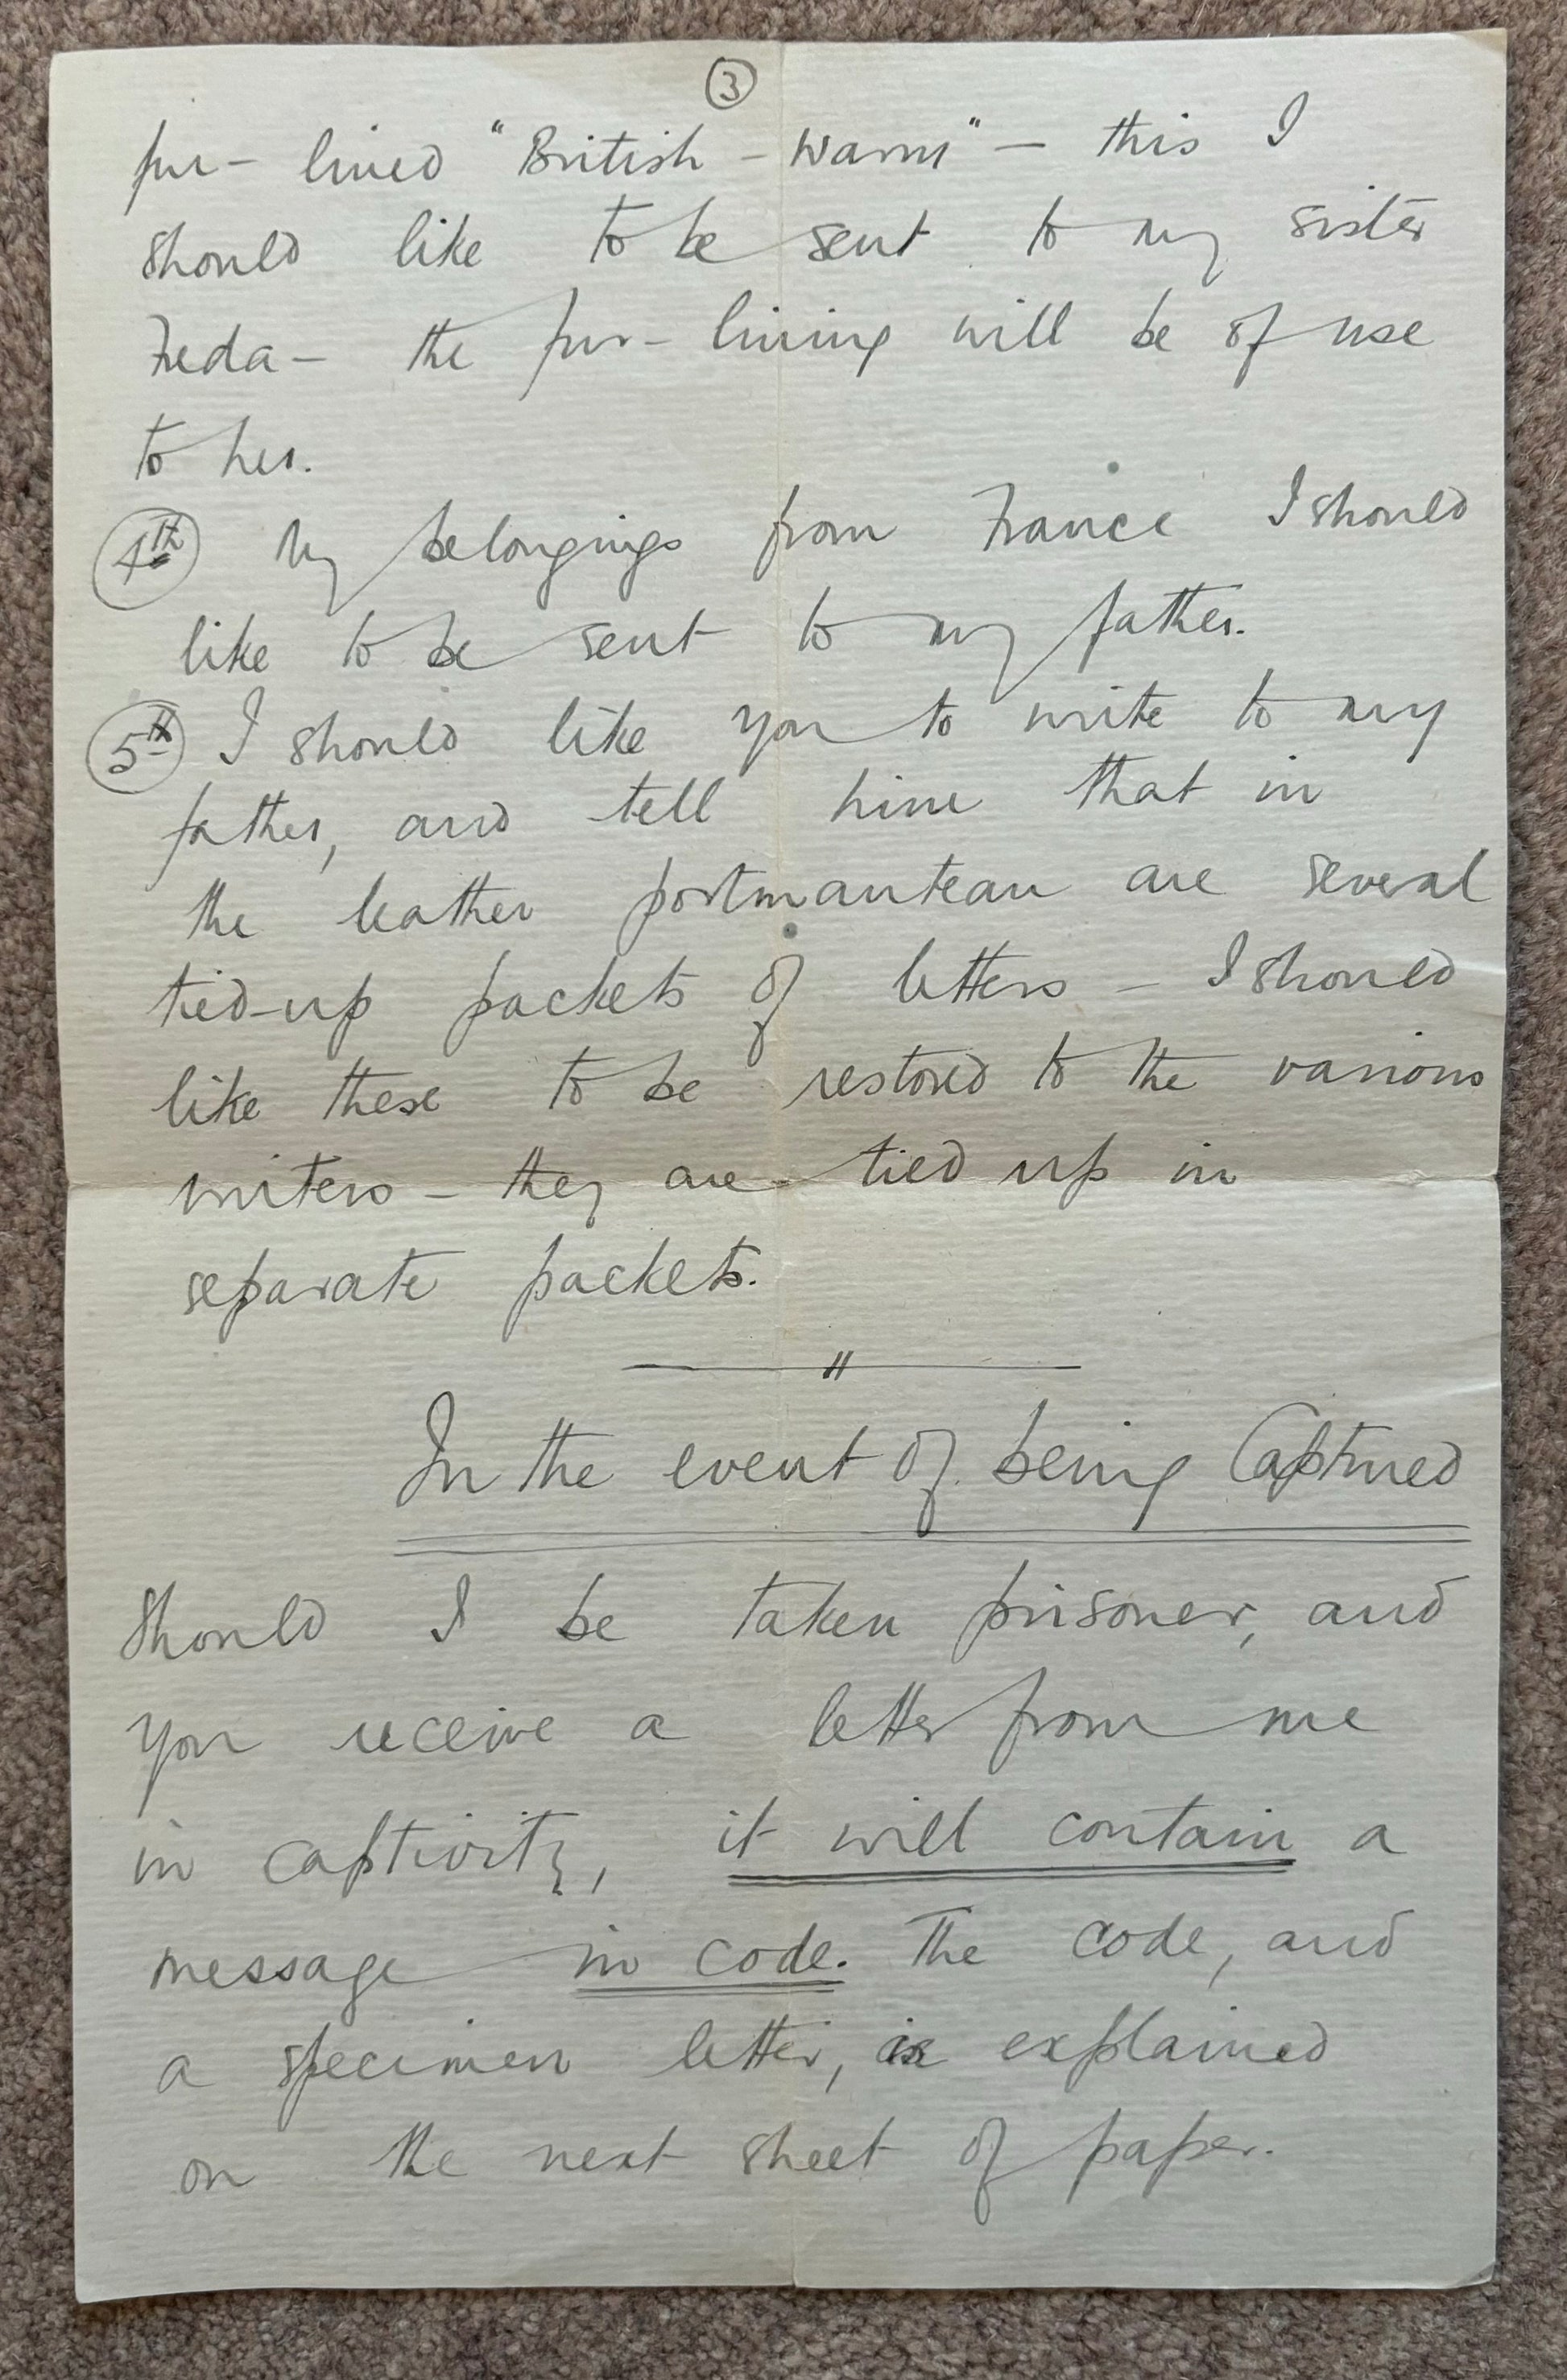 ③
fur-lined "British-Warm" - this I
should like to be sent to my sister
Freda - the fur-lining will be of use
to her.
4th My belongings from France I should
like to be sent to my father.
5th I should like you to write to my
father, and tell him that in
the leather portmanteau are several
tied-up packets of letters - I should
like these to be restored to the various
writers - they are tied up in
separate packets.
In the event of being Captured
Should I be taken prisoner, and
you receive a letter from me
in captivity, it will contain a
message in code. The code, and
a specimen letter, is explained
on the next sheet of paper.